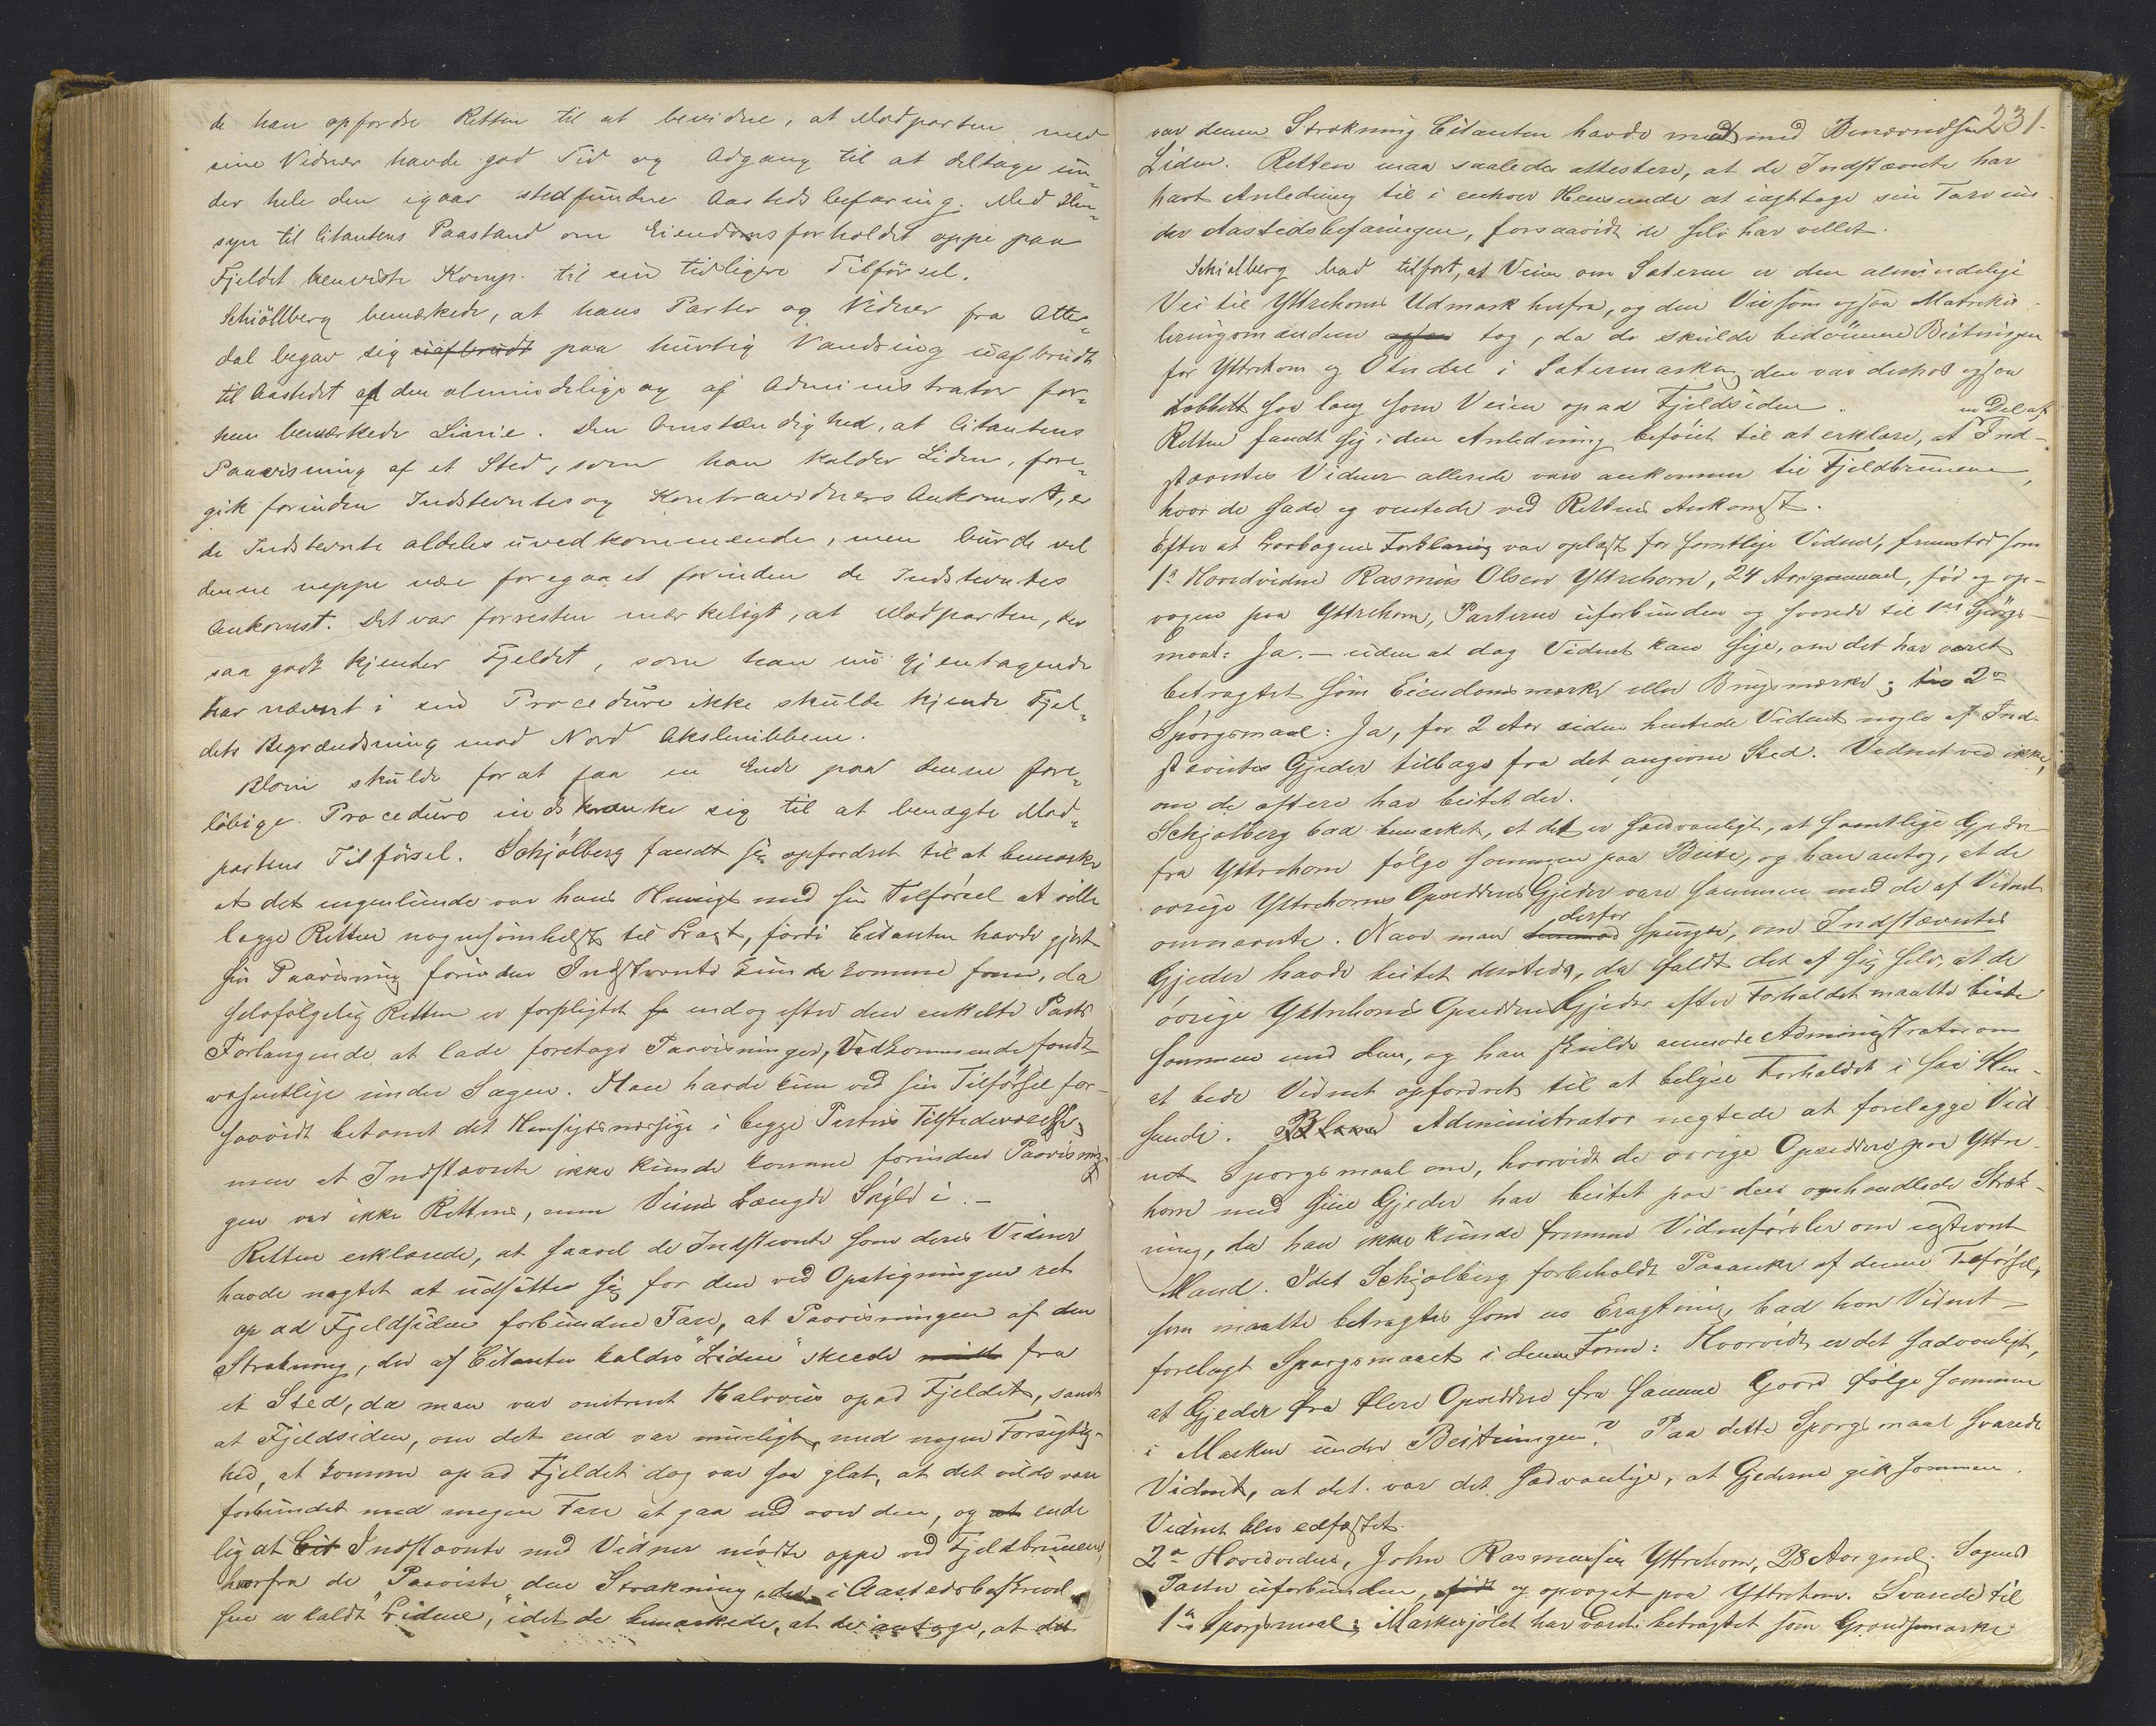 de han opfordre Retten til at bevidne, at Modparten med
sine Vidner havde god Tid og Adgang til at deltage un-
der hele den igaar stedfundne Aastedsbefaring. Med Hen-
syn til Citantens Paastand om Eiendomsforholdet oppe paa
Fjeldet henviste Komp. til sin tidligere Tilførsel.
Schiöllberg bemærkede, at hans Parter og Vidner fra Otter-
dal begav sig uafbrudt paa hurtig Vandring uafbrudt
til Aastedet af den almindelige og af Administrator for-
hen bemærkede Linie. Den Omstændighed, at Citantens
Paavisning af et Sted, som han kalder Liden, fore-
gik forinden Indstevntes og Kontravidners Ankomst, er
de Indstevnte aldeles uvedkommende, men burde vel
denne neppe være foregaaet forinden de Indstevntes
Ankomst. Det var forresten mærkeligt, at Modparten, der
saa godt kjender Fjeldet, som han nu gjentagende
har nævnt i sin Procedure ikke skulde kjende Fjel-
dets Begrændsning mod Nord Akslenibbene.
Blom skulde for at faa en Ende paa denne fore-
løbige Procedure indskrænke sig til at benægte Mod-
partens Tilførsel. Schjölberg fandt sig opfordret til at bemærke
at det ingenlunde var hans Hensigt med sin Tilførsel at ville
lægge Retten nogensomhelst til Last, fordi Citanten havde gjort
sin Paavisning forinden Indstevnte kunde komme frem, da
selvfølgelig Retten er forpligtet endog efter den enkelte Parts
Forlangende at lade foretage Paavisninger, Vedkommende fandt
væsentlige under Sagen. Man havde kun ved sin Tilførsel for-
saavidt betonet det Hensigtsmæssige i begge Parters Tilstedeværelse,
men at Indstævnte ikke kunde komme forinden Paavisnin-
gen var ikke Rettens, men Veiens Længde Skyld i. -
Retten erklærede, at saavel de Indstevnte som deres Vidner
havde nægtet at udsætte sig for den ved Opstigningen ret
op ad Fjeldsiden forbundne Fare, at Paavisningen af den
Strækning, der af Citanten kaldes "Liden" skeede midt fra
et Sted, da man var omtrent Halvveis opad Fjeldet, samt
at Fjeldsiden, om det end var muligt, med nogen Forsigtig-
hed, at komme op ad Fjeldet dog var saa glat, at det vilde være
forbundet med megen Fare at gaa ud over den, og at ende
lig at Cit Indstævnte med Vidner mødte oppe ved Fjeldbrunen,
hvorfra de paaviste den Strækning, der i Aastedsbeskrivel
sen er kaldt "Lidene," idet de bemærkede, at de antage, at det
231.
var denne Strækning Citanten havde ment med Benævnelsen
Liden. Retten maa saaledes attestere, at de Indstævnte har
havt Anledning til i enhver Henseende at iagttage sin Tarv un-
der Aastedsbefaringen, forsaavidt de selv har villet.
Schiølberg bad tilført, at Veien om Sæterne er den almindelige
Vei til Yttrehorns Udmark herfra, og den Vei som ogsaa Matriku-
leringsmændene ogsaa tog, da de skulde bedømme Beitningen
for Yttrehorn og Oterdal i Sætermarken, den var desforuden ogsaa
dobbelt saa lang som Veien opad Fjeldsiden.
Retten fandt sig i den Anledning beføiet til at erklære, at en Del af Ind-
stævntes Vidner allerede vare ankomne til Fjeldbrunene,
hvor de sade og ventede ved Rettens Ankomst.
Efter at Lovbogens Forklaring var oplæst for samtlige Vidner, fremstod som
1ste Hovedvidne Rasmus Olsen Yttrehorn, 24 Aar gammel, fød og op-
voxen paa Yttrehorn, Parterne uforbunden og svarede til 1ste Spørgs-
maal: Ja. - uden at dog Vidnet kan sige, om det har været
betragtet som Eiendomsmærke eller Brugsmærke; til 2det
Spørgsmaal: Ja, for 2 Aar siden hentede Vidnet nogle af Ind-
stævntes Gjeder tilbage fra det angivne Sted. Vidnet ved ikke,
om de oftere har beitet der.
Schjølberg bad bemærket, at det er sædvanligt, at samtlige Gjeder
fra Yttrehorn følge sammen paa Beite, og han antog, at de
øvrige Yttrehorns Opsidderes Gjeder vare sammen med de af Vidnet
omnævnte. Naar man derfor spurgte, om Indstævntes
Gjeder havde beitet dersteds, da faldt det af sig selv, at de
øvrige Yttrehorns Opsidderes Gjeder efter Forholdet maatte beite
sammen med dem, og han skulde anmode Administrator om
at bede Vidnet opfordret til at belyse Forholdet i saa Hen-
seende. Blom Administrator negtede at forelægge Vid
net Spørgsmaal om, hvorvidt de øvrige Opsiddere paa Yttre-
horn med sine Gjeder har beitet paa den omhandlede Stræk-
ning, da han ikke kunde fremme Vidneførsler om ustevnt
Mand. Idet Schjølberg forbeholdt Paaanke af denne Tilførsel,
som maatte betragtes som en Eragtning, bad han Vidnet
forelagt Spørgsmaalet i denne Form: Hvorvidt er det sædvanligt,
at Gjeder fra flere Opsiddere fra samme Gaard følge sammen
i Marken under Beitningen? Paa dette Spørgsmaal svarede
Vidnet, at det var det sædvanlige, at Gjederne gik sammen.
Vidnet blev edfæstet.
2det Hovedvidne, John Rasmussen Yttrehorn, 28 Aar gml. Sagens
Parter uforbunden, født og opvoxet paa Yttrehorn. Svarede til
1ste Spørgsmaal: Maskesjølet har været betragtet som Grændsemærke